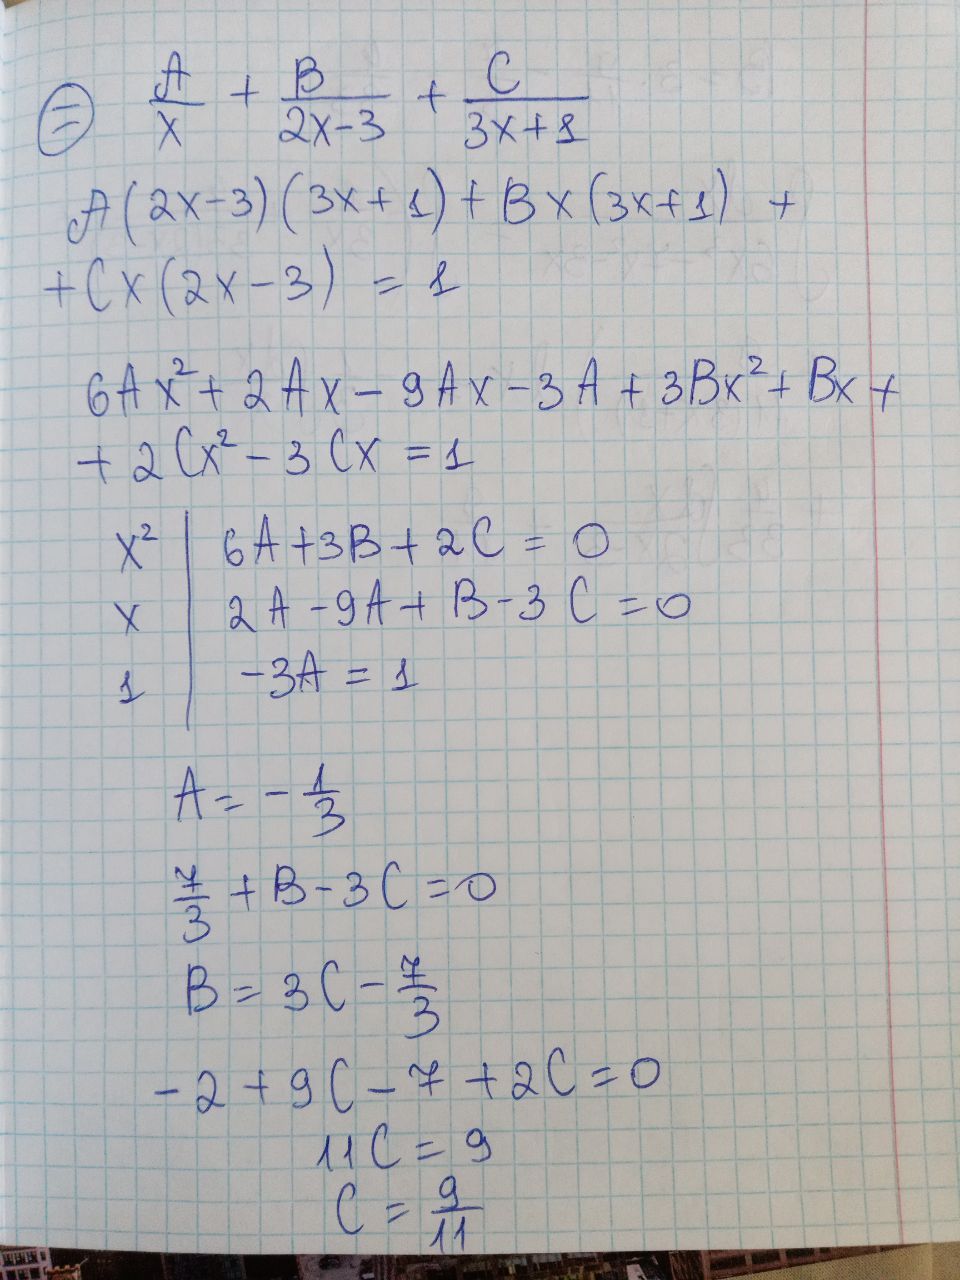 = A/x + B/(2x-3) + C/(3x+1)
A(2x-3)(3x+1)+Bx(3x+1) +
+Cx(2x-3) = 1
6Ax²+2Ax-9Ax-3A+3Bx²+Bx+
+2Cx²-3Cx = 1
x² | 6A+3B+2C = 0
x | 2A-9A+B-3C = 0
1 | -3A = 1
A = -1/3
7/3 + B-3C = 0
B = 3C - 7/3
-2+9C-7+2C = 0
11C = 9
C = 9/11